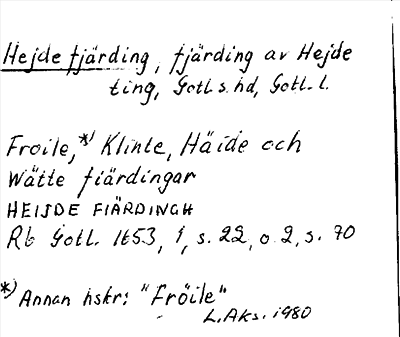 Hejde fjärding, fjärding av Hejde
ting, Gotl. s. hd, Gotl. l.
Froile,*) Klinte, Häide och
Wätte fiärdingar
HEIJDE FIÄRDINGH
Rb Gotl. 1653, 1, s. 22, o. 2, s. 70
*) Annan hskr: "Fröile"
L. Aks. 1980